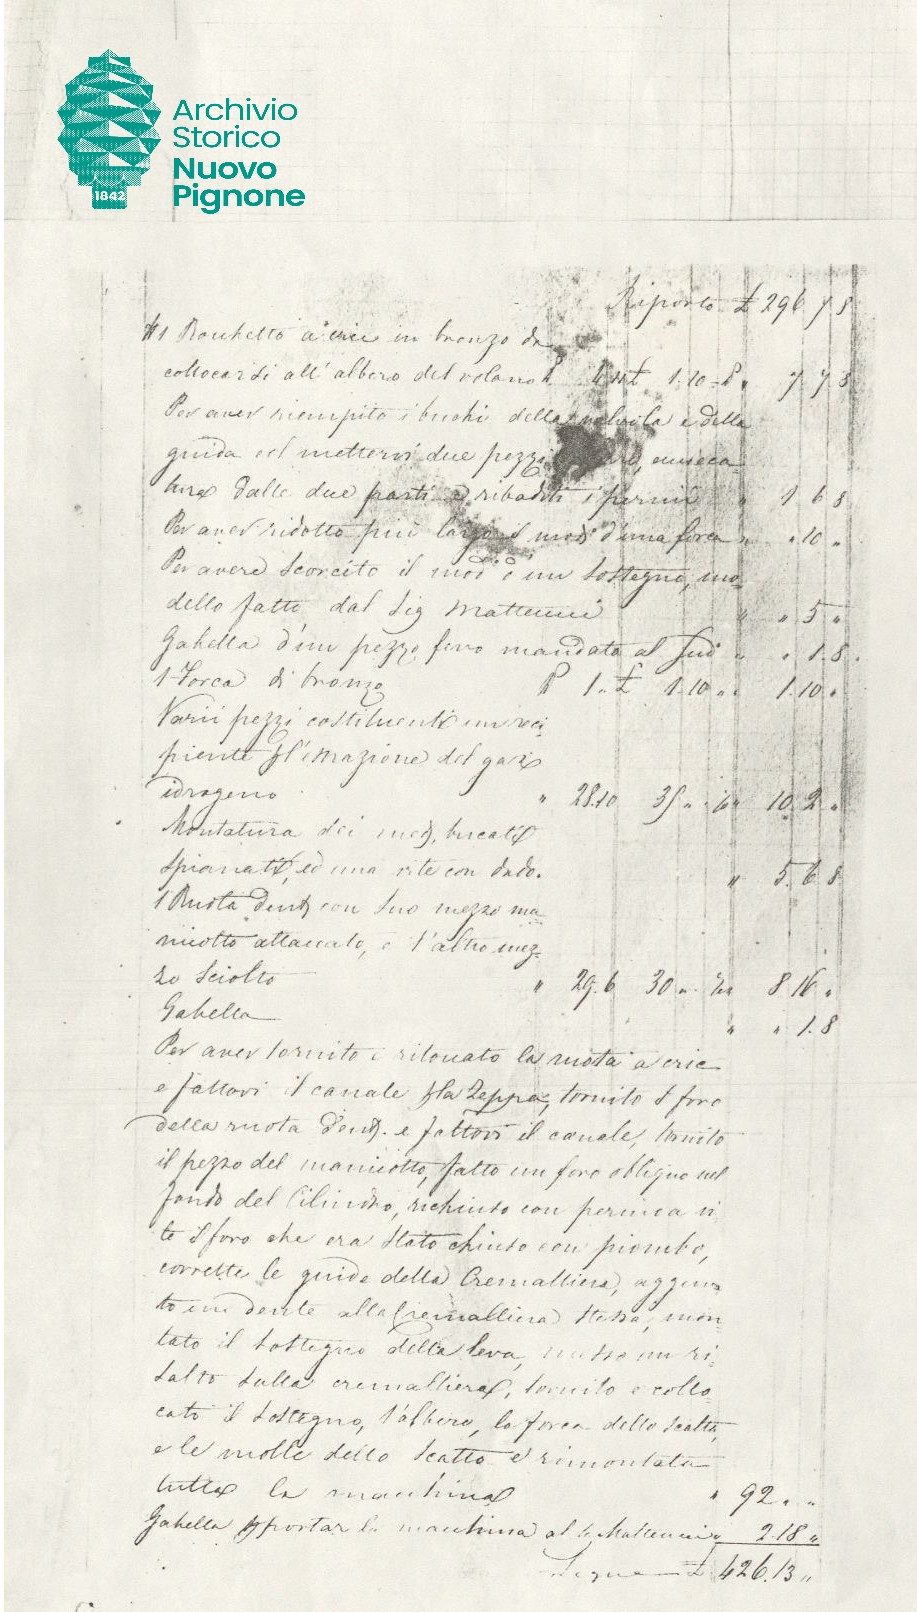 Archivio
Storico
Nuovo
Pignone
1842
Riporto £ 296 7 8
1 Rocchetto a cric in bronzo da
collocarsi all'albero del volano 1.10 7 7 8
Per aver riempito i buchi della valvola e della
guida ed mettervi due pezzi
dalle due parti e ribaditi i pernii " 1 6 8
Per aver ridotto più largo il mod° d'una forca " " 10 "
Per avere scorcito il mod° d'un sostegno, mo-
dello fatto dal Sig Matteucci " " 5 "
Gabella d'un pezzo ferro mandato al Sud° " " 1.8.
1 Forca di bronzo 1 " £ 1.10 " " 1.10 "
Varii pezzi costituenti un reci-
piente p l'estrazione del gas
idrogeno " 28.10 35 " 10.2 "
Montatura dei med, bucati
spianati, ed una vite con dado. " 5.6.8
1 Ruota dent con suo mezzo ma-
nicotto attaccato, e l'altro mez-
zo sciolto " 29.6 30 " 8 16 "
Gabella " " 1.8
Per aver tornito e ritoccato la ruota a cric
e fattovi il canale p la zeppa, tornito il foro
della ruota dent. e fattovi il canale, tornito
il pezzo del manicotto, fatto un foro obliquo nel
fondo del Cilindro, richiuso con pernio a vi-
te il foro che era stato chiuso con piombo,
corrette le guide della Cremalliera, aggiun-
to un dente alla Cremalliera stessa, mon-
tato il sostegno della leva, messo un ri-
salto sulla cremalliera, tornito e collo-
cato il sostegno, l'albero, la forca dello scatto,
e le molle dello scatto e rimontata
tutta la macchina " 92 " "
Gabella p portar la macchina al S. Matteucci " 2.18 "
Segue £ 426.13 "